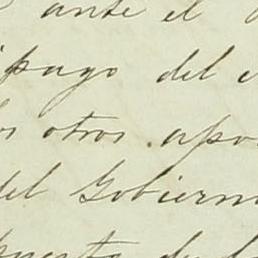 ante el
pago del
otros apo
del Gobiern